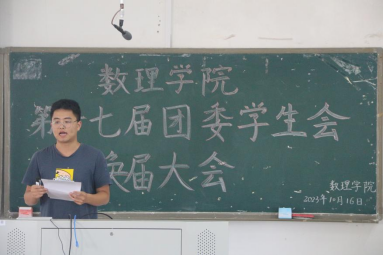 数理学院
第七届团委学生会
换届大会
数理学院
2013年10月16日